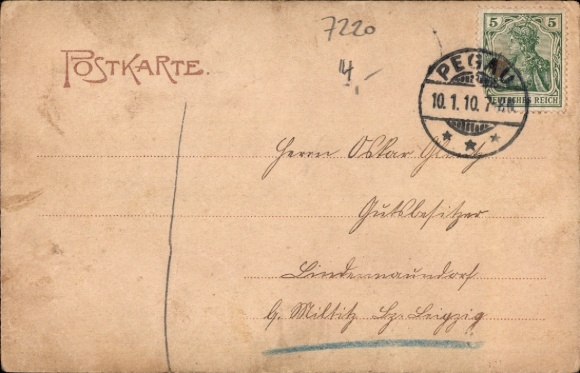 7220
14,-
POSTKARTE.
5 5
DEUTSCHES REICH
PEGAU
10.1.10. 7-
Herrn Oskar
Gutsbesitzer
Lindennaundorf
b. Miltitz Bz. Leipzig